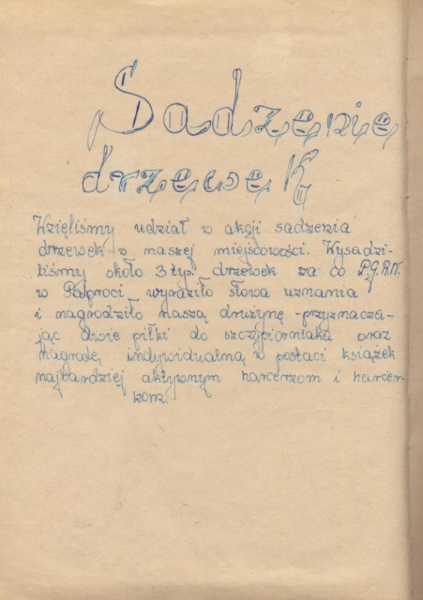 Sadzenie
drzewek
Wzięliśmy udział w akcji sadzenia
drzewek w naszej miejscowości. Wysadzi-
liśmy około 3 tyś. drzewek za co P.G.R.N.
w Paproci wyraziło słowa uznania
i nagrodziło naszą drużynę - przyznacza-
jąc dwie piłki do szczypiorniaka oraz
nagrodę indywidualną w postaci książek
najbardziej aktywnym harcerzom i harcer-
kom.